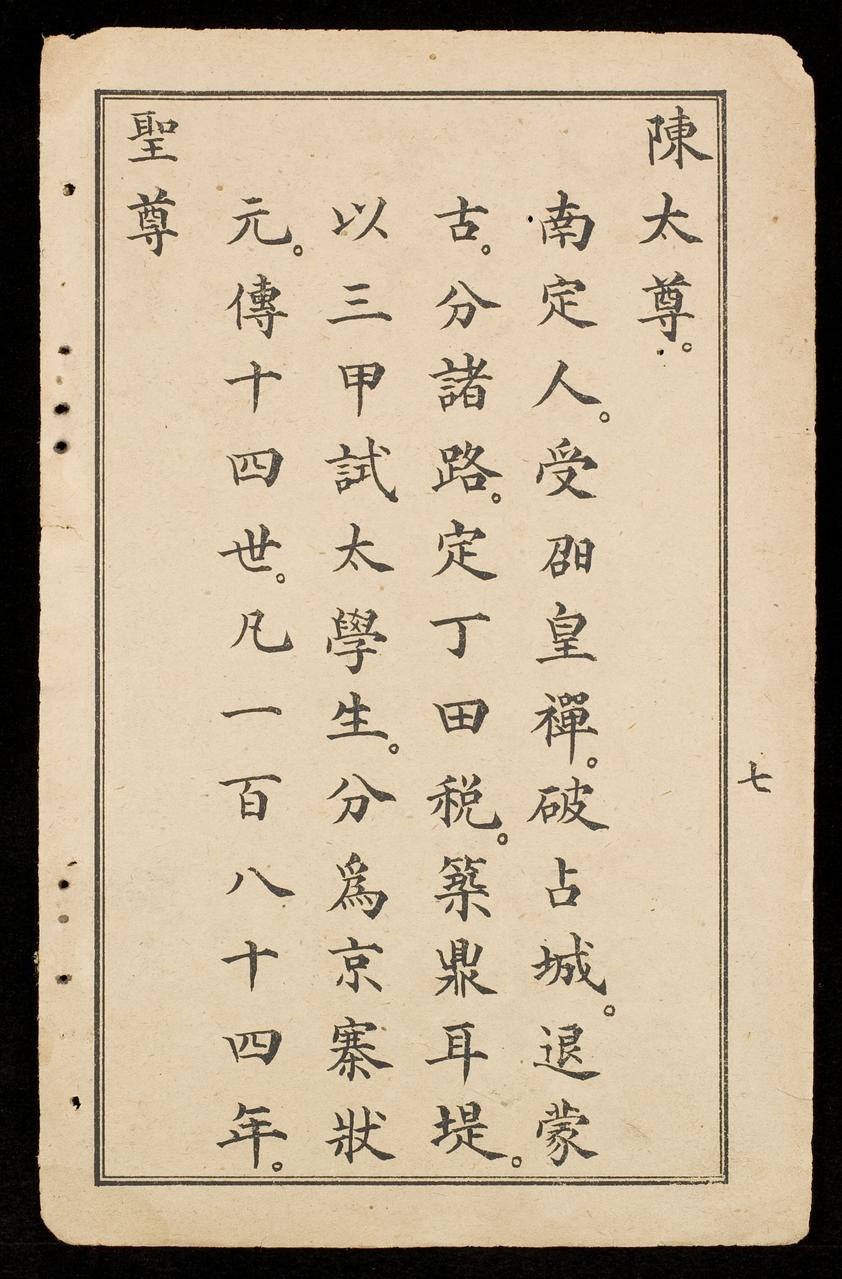 陳太尊。
南定人。受昭皇禪。破占城。退蒙
古。分諸路。定丁田税。築鼎耳堤。
以三甲試太學生。分爲京寨狀
元。傳十四世。凡一百八十四年。
聖尊
七